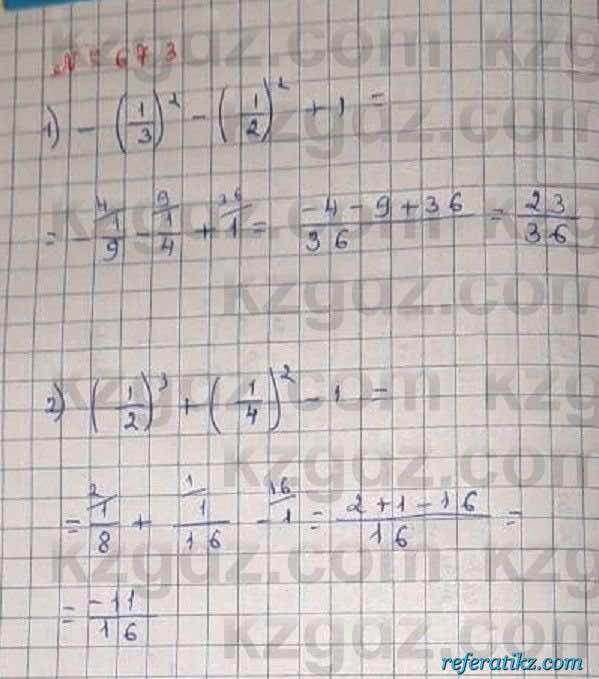 № 673
1) - (1/3)² - (-1/2)² + 1 =
= - 1/9 ⁴ - 1/4 ⁹ + 1 ³⁶ = (-4 - 9 + 36)/36 = 23/36
2) (-1/2)³ + (-1/4)² - 1 =
= 1/8 ² + 1/16 ¹ - 1 ¹⁶ = (2 + 1 - 16)/16 =
= -11/16
kzgdz.com
referatikz.com